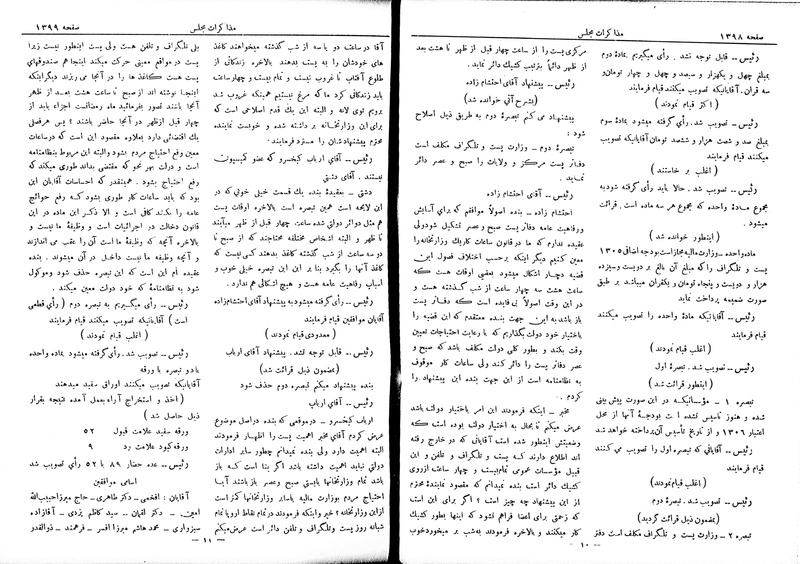 مذاکرات مجلس
صفحه ۱۳۹۸
رئیس - قابل توجه نشد . رأی میگیریم بمادهٔ دوم
بمبلغ چهل و یکهزار و سیصد و چهل و چهار تومان و
سه قران . آقایانیکه تصویب میکنند قیام فرمایند
( اکثر قیام نمودند )
رئیس - تصویب شد . رأی گرفته میشود بمادهٔ سوم
بمبلغ صد و شصت هزار و ششصد تومان آقایانیکه تصویب
میکنند قیام فرمایند
( اغلب بر خاستند )
رئیس - تصویب شد . حالا باید رأی گرفته شود به
مجموع مادهٔ واحده که مجموع هر سه ماده است . قرائت
میشود .
( اینطور خوانده شد )
ماده واحده - وزارت مالیه مجاز است بودجه اضافی ۱۳۰۵
پست و تلگراف را که مبلغ آن بالغ بر دویست و سیزده
هزار و دویست و پنجاه تومان و یکقران میباشد بر طبق
صورت ضمیمه پرداخت نماید
رئیس - آقایانیکه مادهٔ واحده را تصویب میکنند
قیام فرمایند
( اغلب قیام نمودند )
رئیس - تصویب شد . تبصرهٔ اول
( اینطور قرائت شد )
تبصره ۱ - مؤسساتیکه در این صورت پیش بینی
شده و هنوز تاسیس نشده است بودجهٔ آنها از محل
اعتبار ۱۳۰۶ و از تاریخ تأسیس آن پرداخته خواهد شد
رئیس - آقایانی که تبصره اول را تصویب می کنند
قیام فرمایند
( اغلب قیام نمودند )
رئیس - تصویب شد . تبصرهٔ دوم
( بمضمون ذیل قرائت گردید )
تبصره ۲ - وزارت پست و تلگراف مکلف است دفتر
مرکزی پست را از ساعت چهار قبل از ظهر تا هشت بعد
از ظهر دائماً بترتیب کشیک دائر نماید .
رئیس - پیشنهاد آقای احتشام زاده
( بشرح آتی خوانده شد )
پیشنهاد می کنم تبصرهٔ دوم به طریق ذیل اصلاح
شود :
تبصره دوم - وزارت پست و تلگراف مکلف است
دفاتر پست مرکز و ولایات را صبح و عصر دائر
نماید .
رئیس - آقای احتشام زاده
احتشام زاده - بنده اصولاً موافقم که برای آسایش
ورفاهیت عامه دفاتر پست صبح و عصر تشکیل شود ولی
عقیده ندارم که ما در قانون ساعات کار یک وزارتخانه را
معین کنیم دیگر اینکه برحسب اختلاف فصول این
قضیه دچار اشکال میشود بعضی اوقات هست که
ساعت هشت سه چهار ساعت از شب گذشته هست و
در این وقت اصولاً بی فایده است که دفاتر پست
باز باشد به این جهت بنده معتقدم که این قضیه را
باختیار خود دولت بگذاریم که با رعایت احتیاجات تعیین
وقت بکند و بطور کلی دولت مکلف باشد که صبح و
عصر دفاتر پست را دائر کند ولی ساعات کار موقوف
به نظامنامه است از این جهت بنده این پیشنهاد را
کردم .
مخبر - اینکه فرمودند این امر باختیار دولت باشد
عرض میکنم تا بحال به اختیار دولت بوده است که
وضعیتش اینطور شده است آقایانی که در خارج رفته
اند اطلاع دارند که پست و تلگراف و تلفن و این
قبیل مؤسسات عمومی تمام بیست و چهار ساعت ازروی
کشیک دائر است بنده نمیدانم که مقصود نمایندهٔ محترم
از این پیشنهاد چه چیز است ؟ اگر برای این است
که زحمتی برای اعضا فراهم نشود که اینها بطور کشیک
کار میکنند و بالاخره فرمودند به شب بر میخوردخوب
- ۱۰ -
مذاکرات مجلس
صفحه ۱۳۹۹
آقا درساعت دو یا سه از شب گذشته میخواهند کاغذ
های خودشان را به پست بدهند بالاخره زندگانی از
طلوع آفتاب تا غروب نیست و تمام بیست و چهار ساعت
باید زندگانی کرد ما که مرغ نیستیم همینکه غروب شد
برویم توی لانه و البته این یک قدم اصلاحی است که
برای این وزارتخانه بر داشته شده و خوبست نماینده
محترم پیشنهادشان را مسترد فرمایند .
رئیس - آقای ارباب کیخسرو که عضو کمیسیون
نیستند . آقای دشتی
دشتی - بعقیدهٔ بنده یک قسمت خیلی خوبی که در
این لایحه است همین تبصره است بالاخره اوقات پست
هم مثل دوائر دولتی شده ساعت چهار قبل از ظهر میآیند
تا ظهر و البته اشخاص مختلفه محتاجند که از صبح تا
دو سه ساعت از شب گذشته کاغذ بدهند کسی نیست که
کاغذ آنها را بگیرد بنا بر این این تبصره خیلی خوب و
اسباب رفاهیت عامه هست و هیچ اشکالی هم ندارد .
رئیس - رأی گرفته میشود به پیشنهاد آقای احتشام زاده
آقایان موافقین قیام فرمایند
( معدودی قیام نمودند )
رئیس - قابل توجه نشد . پیشنهاد آقای ارباب
( بمضمون ذیل قرائت شد )
بنده پیشنهاد میکنم تبصره دوم حذف شود
رئیس - آقای ارباب
ارباب کیخسرو - در موقعی که بنده در اصل موضوع
عرض کردم آقای مخبر اهمیت پست را اظهار فرمودند
البته اهمیت دارد ولی بنده نمیدانم چطور سایر ادارات
دولتی نباید اهمیت داشته باشد اگر بنا است که باز
باشد تمام وزارتخانها بایستی صبح و عصر باز باشند آیا
احتیاج مردم بوزارت مالیه یا سایر وزارتخانها کمتر است
از این وزارتخانه ؟ خیر و اینکه فرمودند در تمام نقاط اروپا تمام
شبانه روز پست و تلگراف و تلفن دائر است عرض میکنم
بلی تلگراف و تلفن هست ولی پست اینطور نیست زیرا
پست در مواقع معینی حرکت میکند اینجا هم صندوقهای
پست هست کاغذ ها را در آنجا می ریزند دیگر اینکه
اینجا نوشته اند از صبح تا ساعت هشت بعد از ظهر
آنجا باشند تصور بفرمائید ماه رمضان است اجزاء باید از
چهار قبل از ظهر در آنجا حاضر باشند ؟ پس هر فصلی
یک اقتضائی دارد بعلاوه مقصود این است که در ساعات
معین رفع احتیاج مردم بشود والبته این مربوط بنظامنامه
است و دولت بهر نحو که مقتضی بداند طوری میکند که
رفع احتیاج بشود . همینقدر که احساسات آقایان این
بود که باید ساعات کار طوری بشود که رفع حوائج
عامه را بکند کافی است و الا ذکر این ماده در این
قانون دخالت در اجرائیات است و وظیفهٔ ما نیست و
بالاخره آنچه که وظیفهٔ ما است آن را عقب می اندازند
و آنچه وظیفه ما نیست داخل در آن میشوند . بنده
عقیده ام این است که این تبصره حذف شود و موکول
شود به نظامنامهٔ که خود دولت معین میکند .
رئیس - رأی میگیریم به تبصره دوم ( رأی قطعی
است ) آقایانیکه تصویب میکنند قیام فرمایند
( اغلب قیام نمودند )
رئیس - تصویب شد . رأی گرفته میشود بماده واحده
با دو تبصره با ورقه
آقایانیکه تصویب میکنند اوراق سفید میدهند
( اخذ و استخراج آراء بعمل آمده نتیجه بقرار
ذیل حاصل شد )
ورقه سفید علامت قبول ۵۲
ورقه کبود علامت رد ۹
رئیس - عده حضار ۸۹ با ۵۲ رأی تصویب شد
اسامی موافقین
آقایان : افخمی - دکتر طاهری - حاج میرزا حبیب الله
امین - دکتر لقمان - سید کاظم یزدی - آقازاده
سبزواری - محمد هاشم میرزا افسر - فرهمند - ذوالقدر
- ۱۱ -